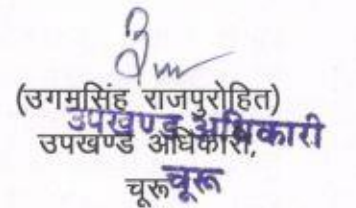 (उगमसिंह राजपुरोहित)
उपखण्ड अधिकारी
उपखण्ड अधिकारी,
चूरू चूरू